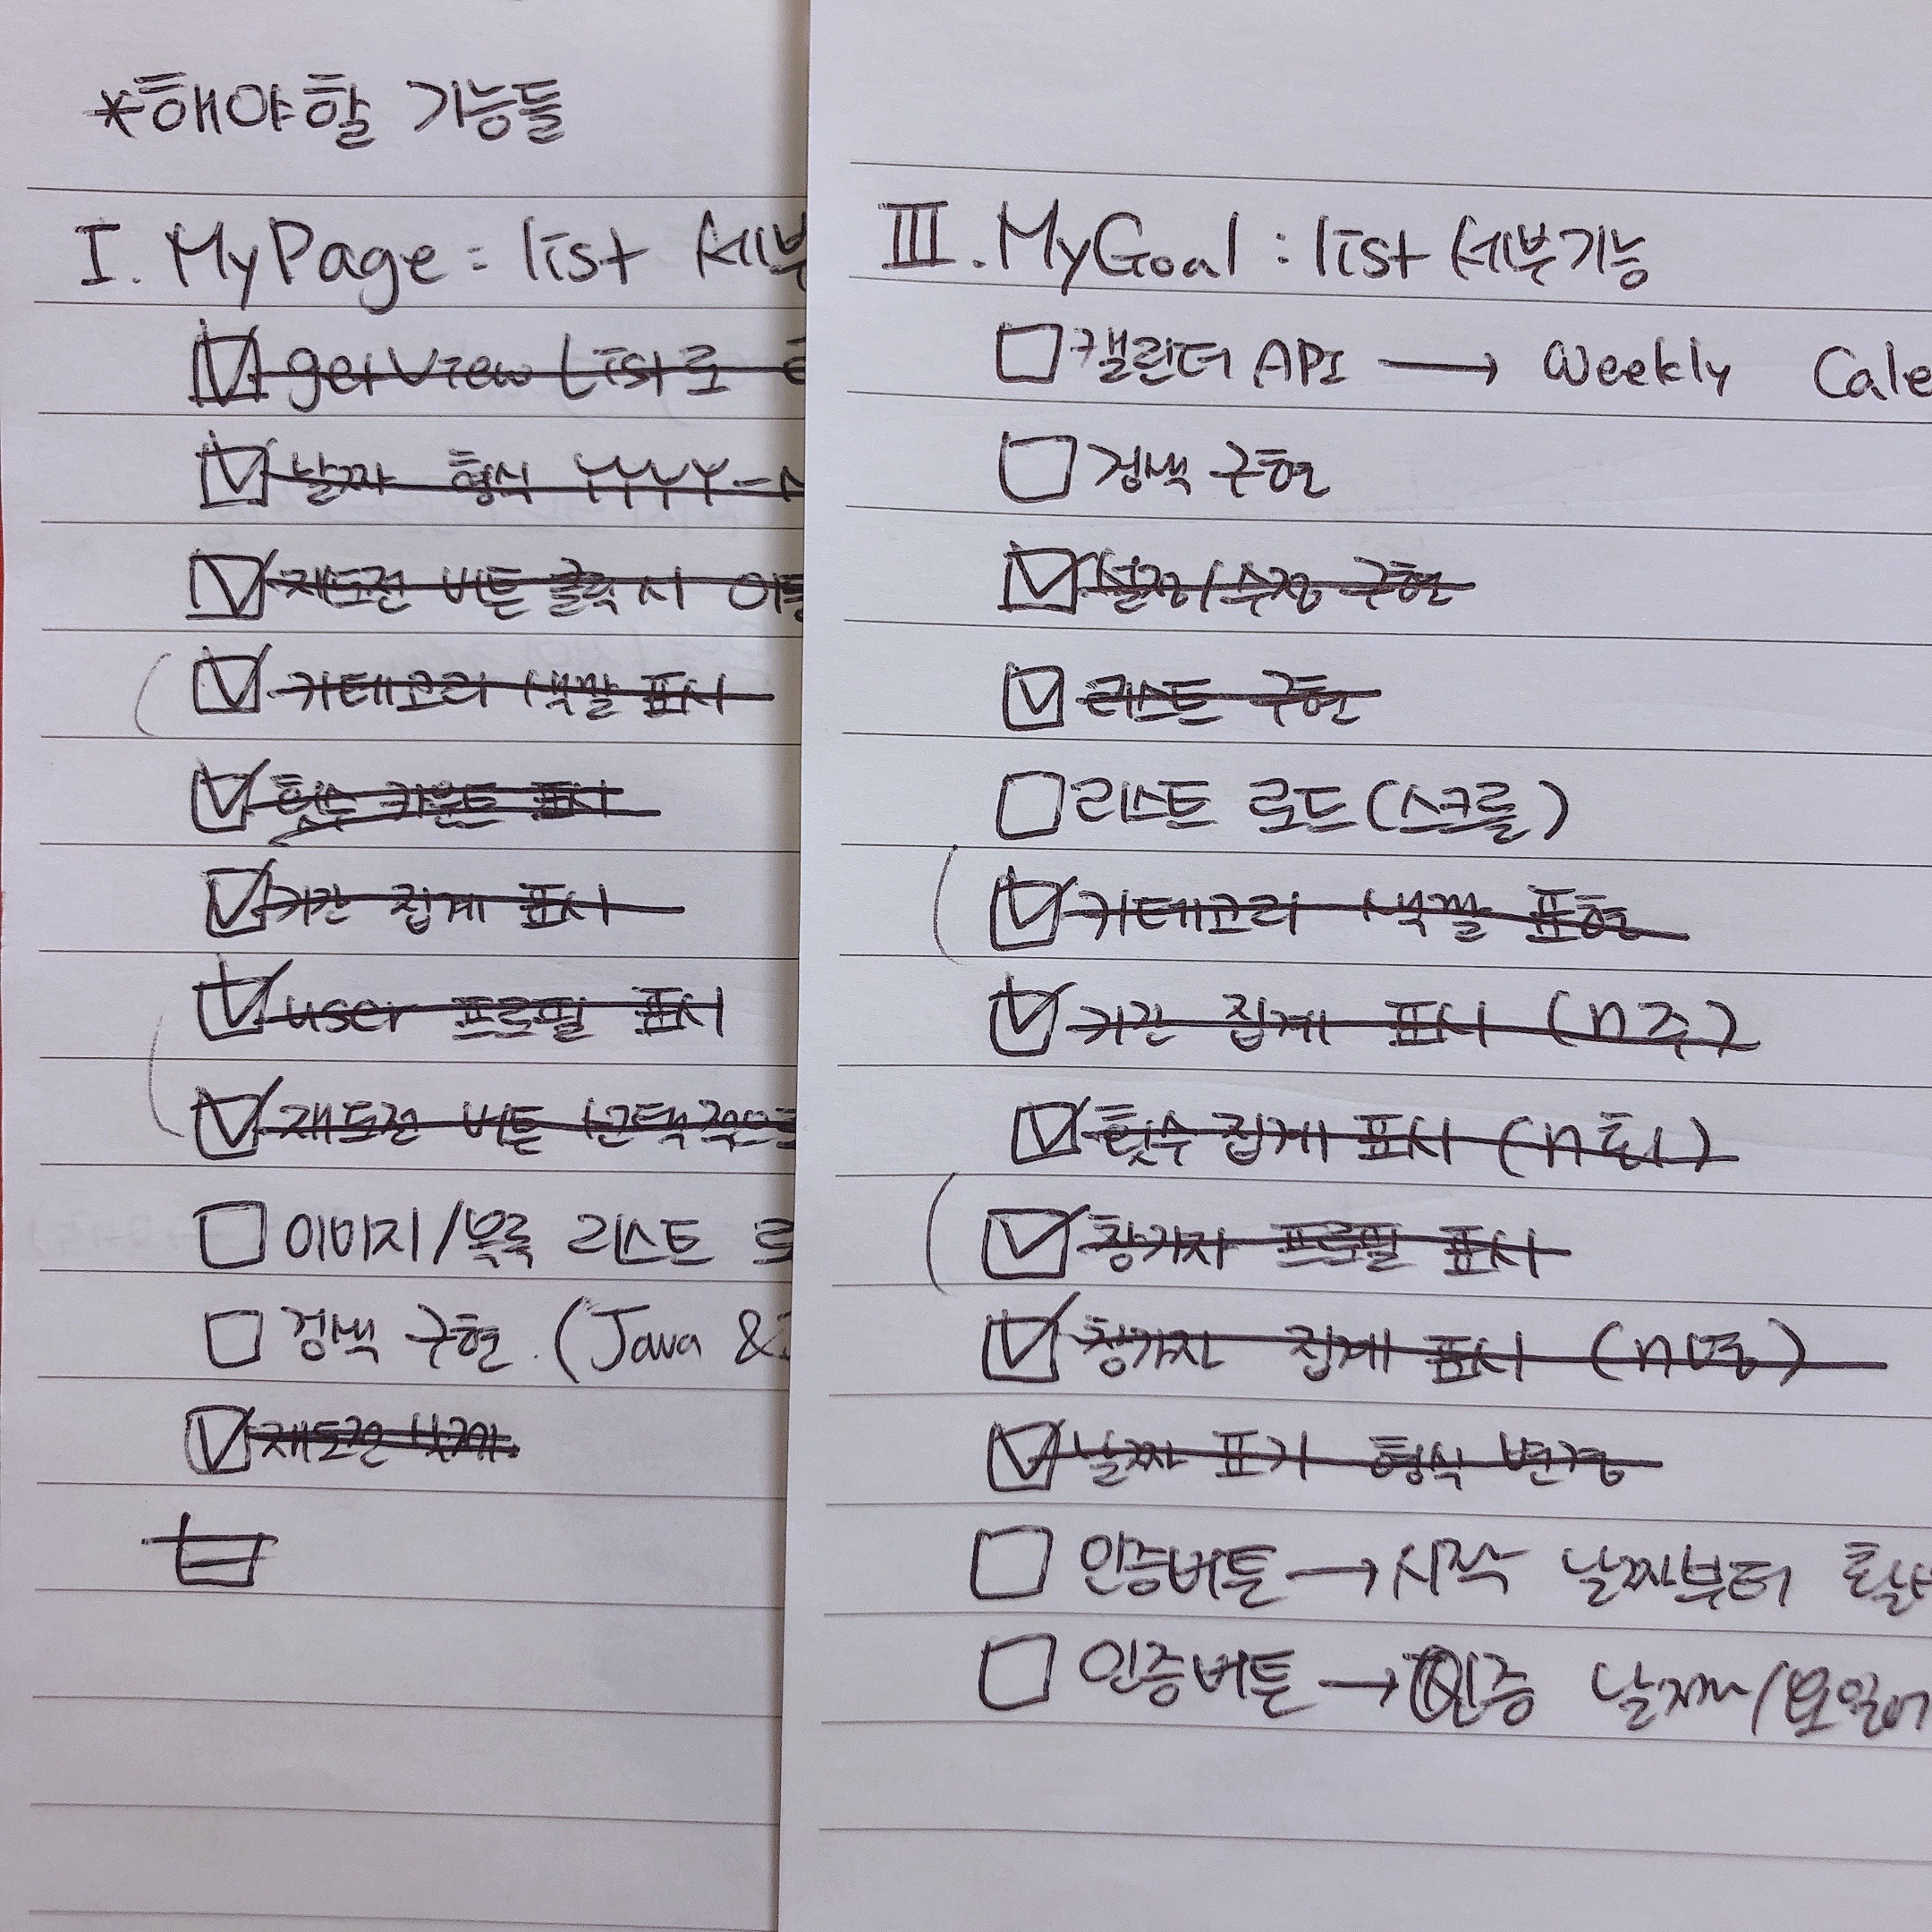 *해야할 기능들
I. MyPage : list 세부
getView List로
날짜 형식 YYYY-
재도전 버튼 클릭시 이동
카테고리 색깔 표시
횟수 카운트 표시
기간 집계 표시
user 프로필 표시
재도전 버튼 선택적으로
이미지/목록 리스트 로
검색 구현. (Java &
재도전
III. MyGoal : list 세부기능
캘린더 API → Weekly Cale
검색 구현
설정/수정 구현
리스트 구현
리스트 로드(스크롤)
카테고리 색깔 표현
기간 집계 표시 (n주)
횟수 집계 표시 (n회)
참가자 프로필 표시
참가자 집계 표시 (n명)
날짜 표기 형식 변경
인증버튼 → 시작 날짜부터 활
인증버튼 → 인증 날짜/요일에